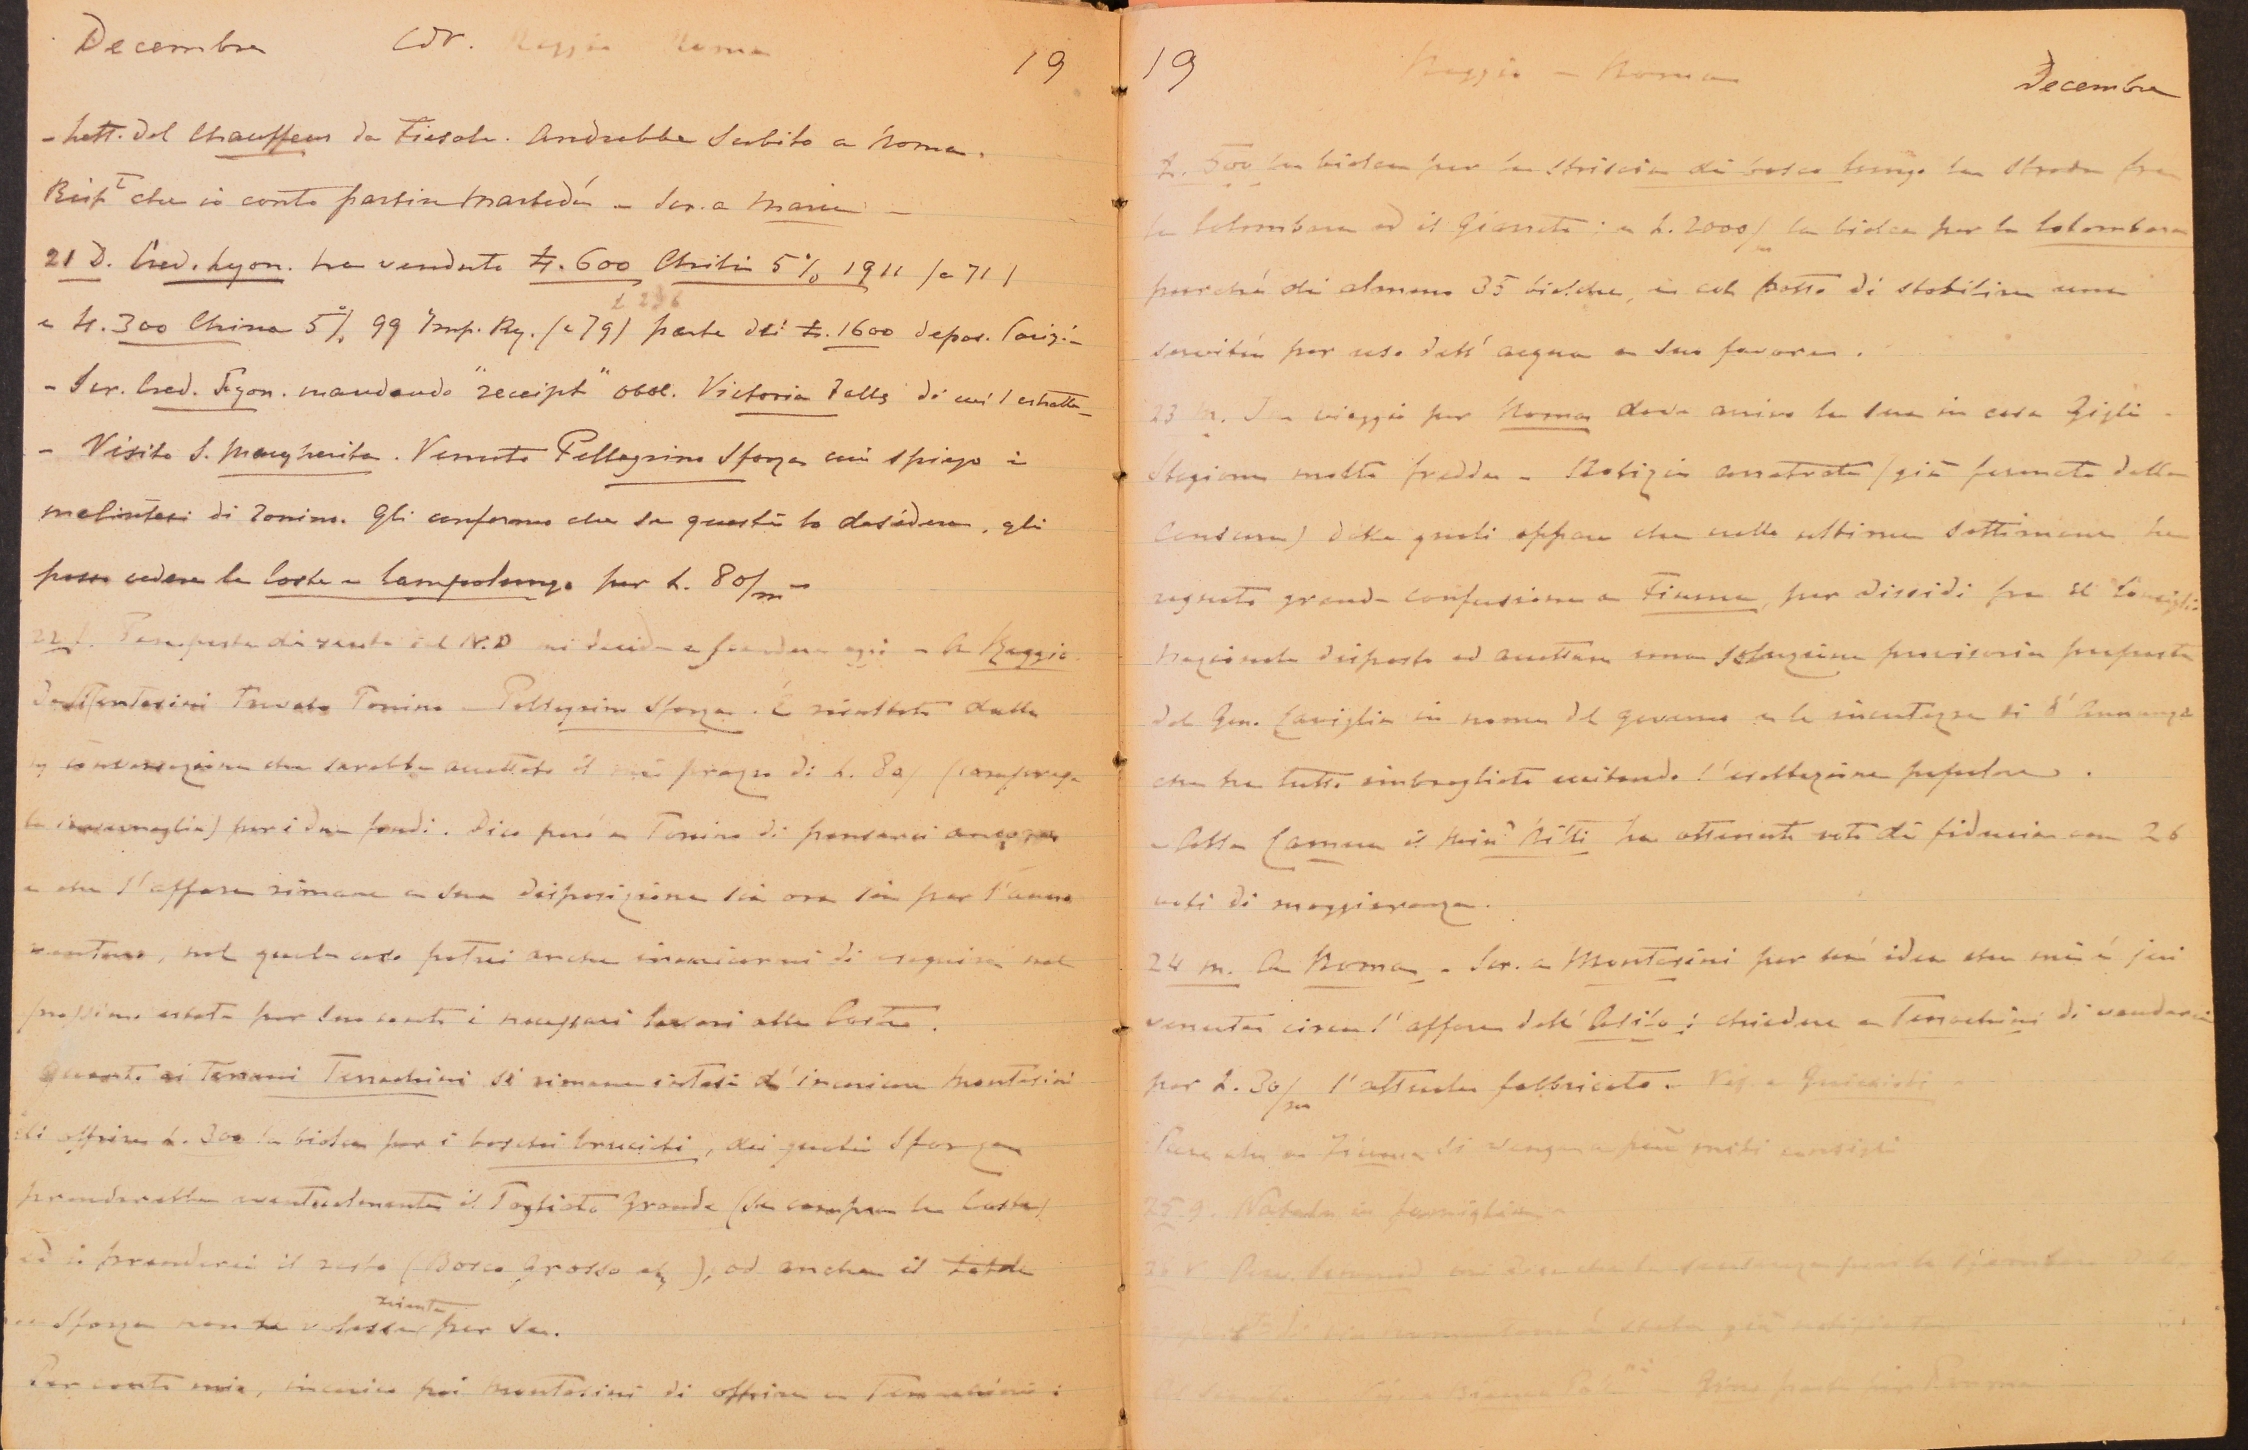 Decembre Cdr. Reggio Roma 19
- Lett. del Chauffeur da Fiesole. Andrebbe subito a Roma.
che io conto partire Martedì - Scr. a Maria -
21 D. Cred. Lyon. ha venduto 600 5% 1911 (a 71)
£ 236
e 300 China 5% 99 Imp. Ry. (a 79) parte dei 1600 depos. Parigi -
- Scr. Cred. Lyon. mandando "receipt" obbl. Victoria Falls di cui 1 estratta -
- Visita S. Margherita. Venuto Pellegrino Sforza cui spiego i
malintesi di Tonino. Gli confermo che se questi lo desidera, gli
posso cedere le Coste e Campolungo per L. 80/m -
22 L. Tempesta di vento del N.O mi decide a scendere oggi - A Reggio
da Montesini trovato Tonino - Pellegrino Sforza. È risultato dalla
conversazione che sarebbe accettato il mio prezzo di L. 80/ (compresa
la ) per i due fondi. Dico però a Tonino di pensarci ancora
e che l'affare rimane a sua disposizione sia ora sia per l'anno
venturo, nel quale caso potrei anche incaricarmi di eseguire nel
prossimo estate per suo conto i necessari lavori alle Coste.
Quanto ai terreni Terrachini si rimane intesi d'incaricare Montesini
di offrire L. 300 la biolca per i boschi bruciati, dei quali Sforza
prenderebbe eventualmente il Tagliata Grande (se compra le Coste)
ed io prenderei il resto (Bosco Grosso etc), od anche il totale
niente
se Sforza non ne volesse per se.
Per conto mio, incarico poi Montesini di offrire a Terrachini :
19 Reggio - Roma Decembre
L. 500 la biolca per la striscia di bosco lungo la strada fra
la Colombara ed il Giarreto : e L. 2000/ la biolca per la Colombara
purché di almeno 35 biolche, e col patto di stabilire una
servitù per uso dell'acqua a suo favore.
23 M. In viaggio per Roma dove arrivo la sera in casa Gigli -
Stagione molto fredda - Notizie arretrate (già fermate dalla
Censura) dalle quali appare che nelle ultime settimane ha
regnato grande confusione a Fiume, per dissidi fra il Consiglio
Nazionale disposto ad accettare una soluzione provvisoria proposta
dal Gen. Caviglia in nome del governo e le incertezze di d'Annunzio
che ha tutto imbrogliato eccitando l'esaltazione popolare.
- Alla Camera il Min.o Nitti ha ottenuto voto di fiducia con 26
voti di maggioranza.
24 m. A Roma - Scr. a Montesini per un'idea che mi è jeri
venuta circa l'affare dell'Asilo : chiedere a Terrachini di venderci
per L. 30/m l'attuale fabbricato. - Vis. a Guiccioli
Pare che a Fiume si venga a più miti consigli
25 g. Natale in famiglia -
26 V. mi dice che la
è stata già